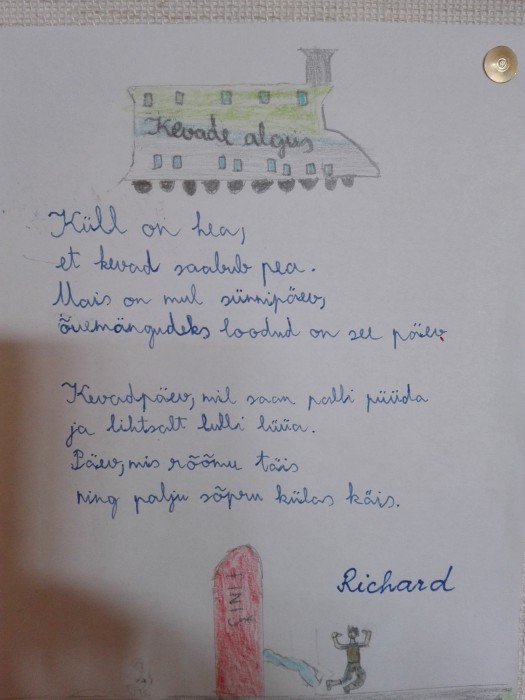 Kevade algus
Küll on hea,
et kevad saabub pea.
Mais on mul sünnipäev,
õuemängudeks loodud on see päev.
Kevadpäev, mil saan palli püüda
ja lihtsalt lulli lüüa.
Päev, mis rõõmu täis
ning palju sõpru külas käis.
Richard
FINIŠ